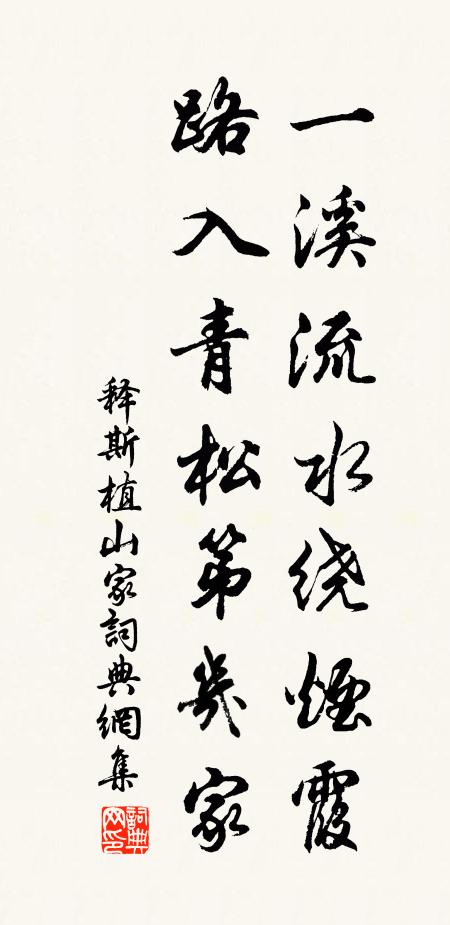 一溪流水绕煙霞
路入青松第幾家
释斯植山家詞典網集
詞典网印